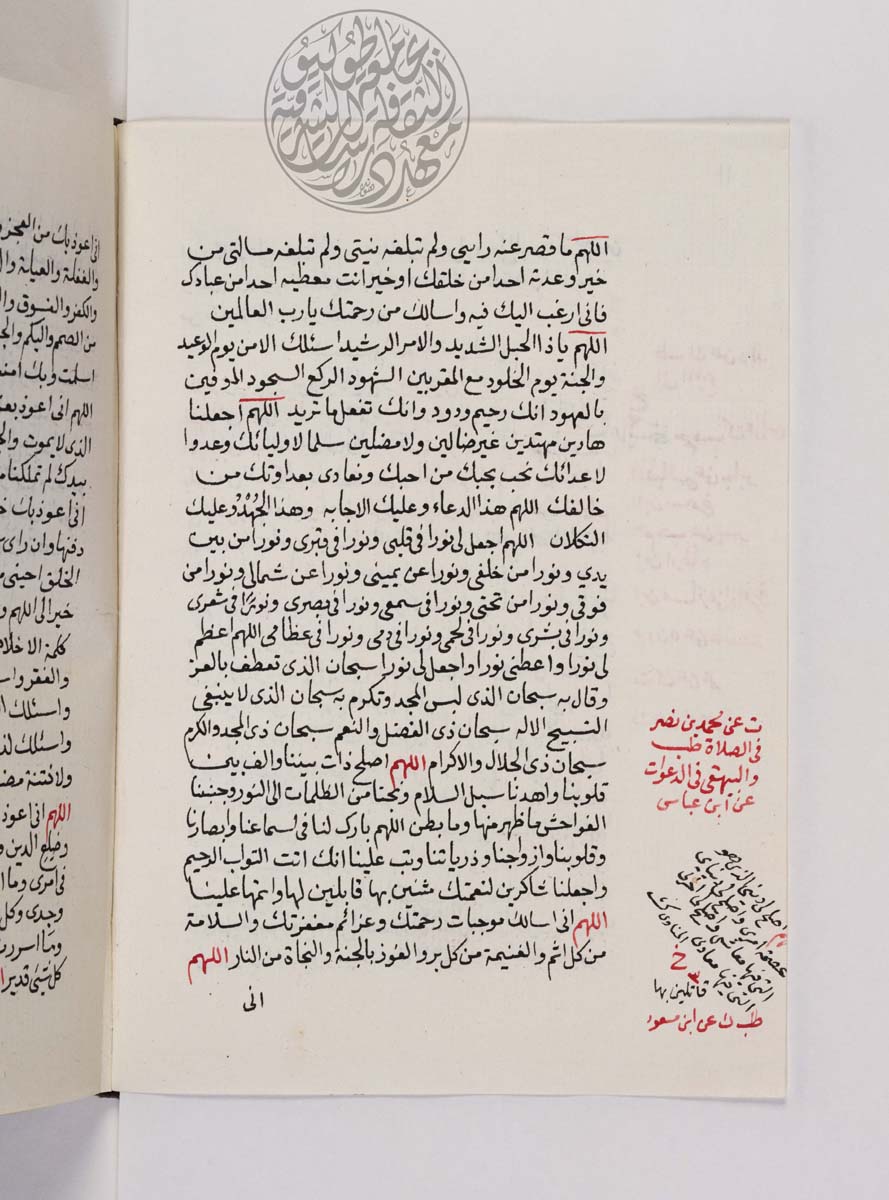 اللهم ما قصر عنه رايي ولم تبلغه نيتي ولم تبلغه مسالتي من
خير وعدته احدا من خلقك او خيرا انت معطيه احدا من عبادك
فاني ارغب اليك فيه واسالك من رحمتك يا رب العالمين
اللهم يا ذا الحبل الشديد والامر الرشيد اسئلك الامن يوم الوعيد
والجنة يوم الخلود مع المقربين الشهود الركع السجود الموفين
بالعهود انك رحيم ودود وانك تفعل ما تريد اللهم اجعلنا
هادين مهتدين غير ضالين ولا مضلين سلما لاوليائك وعدوا
لاعدائك نحب بحبك من احبك ونعادى بعداوتك من
خالفك اللهم هذا الدعاء وعليك الاجابه وهذا الجُهْدُ وعليك
التكلان اللهم اجعل لى نورا فى قلبى ونورا فى قبرى ونورا من بين
يدي ونورا من خلفى ونورا عن يمينى ونورا عن شمالى ونورا من
فوقى ونورا من تحتى ونورا فى سمعى ونورا فى بصرى ونورًا فى شعرى
ونورا فى بشرى ونورا فى لحمى ونورا فى دمى ونورا فى عظامى اللهم اعظم
لى نورا واعطنى نورا واجعل لى نورا سبحان الذى تعطف بالعز
وقال به سبحان الذى لبس المجد وتكرم به سبحان الذى لا ينبغى
التسبيح الا له سبحان ذى الفضل والنعم سبحان ذى المجد والكرم
سبحان ذى الجلال والاكرام اللهم اصلح ذات بيننا والف بين
قلوبنا واهدنا سبل السلام ونجنا من الظلمات الى النور وجنبنا
الفواحش ما ظهر منها وما بطن اللهم بارك لنا فى اسماعنا وابصارنا
وقلوبنا وازواجنا وذرياتنا وتب علينا انك انت التواب الرحيم
واجعلنا شاكرين لنعمتك مثنين بها قابلين لها واتمها علينا
اللهم انى اسالك موجبات رحمتك وعزائم مغفرتك والسلامة
من كل اثم والغنيمة من كل بر والفوز بالجنة والنجاة من النار اللهم
انى
ت عن محمد بن نصر
فى الصلاة طب
والبيهقى فى الدعوات
عن ابن عباس
اصلح لى دينى الذى هو
عصمة امرى واصلح لى دنياى
التى فيها معاشى واصلح لى اخرتى
التى فيها معادى
قائلين بها
طب ك عن ابن مسعود
انى اعوذ بك من العجز
والغفلة والعيلة
والكفر والفسوق
من الصمم والبكم
اسلمت وبك
اللهم انى اعوذ
الذى لا يموت
بيدك لم تملكنا
انى اعوذ بك
دفنها وان راى
الخلق احينى
خيرا لى اللهم
كلمة الاخلاص
والفقر
واسئلك
واسئلك
ولا فتنة
اللهم انى اعوذ
وضلع الدين
فى امرى
وجدى وكل
وما اسررت
كل شئ قدير
معهد دراسات الثقافة الشرقية بجامعة طوكيو